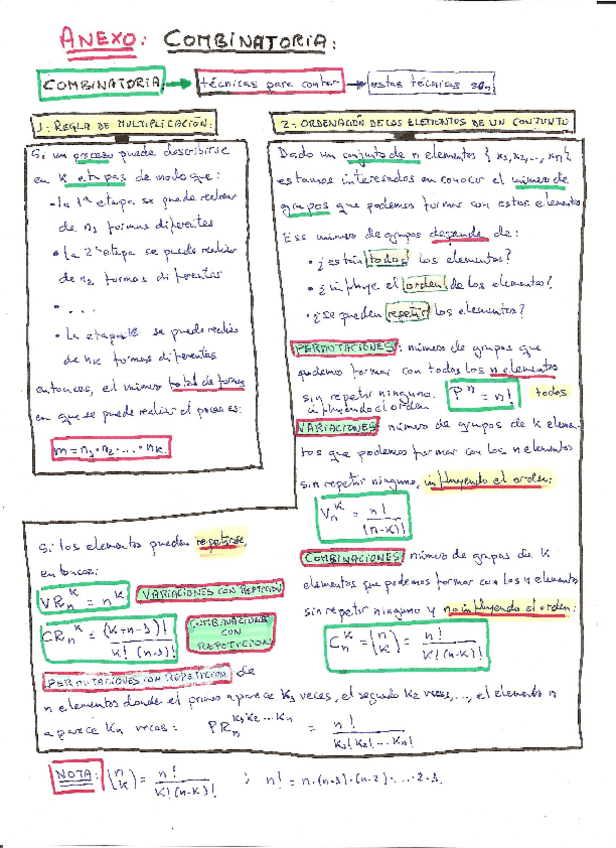 ANEXO: COMBINATORIA:
COMBINATORIA → técnicas para contar → estas técnicas son
1.- REGLA DE MULTIPLICACIÓN:
Si un proceso puede describirse
en K etapas de modo que:
· La 1ª etapa se puede realizar
de n₁ formas diferentes
· La 2ª etapa se puede realizar
de n₂ formas diferentes
· ...
· La etapa K se puede realizar
de nₖ formas diferentes
entonces, el número total de formas
en que se puede realizar el proceso es:
m = n₁ · n₂ · ... · nₖ.
2.- ORDENACIÓN DE LOS ELEMENTOS DE UN CONJUNTO
Dado un conjunto de n elementos {x₁, x₂, ..., xₙ},
estamos interesados en conocer el número de
grupos que podemos formar con estos elementos
Ese número de grupos depende de:
· ¿están todos los elementos?
· ¿influye el orden de los elementos?
· ¿se pueden repetir los elementos?
PERMUTACIONES: número de grupos que
podemos formar con todos los n elementos
sin repetir ninguno, Pⁿ = n! todos
influyendo el orden
VARIACIONES número de grupos de K elemen-
tos que podemos formar con los n elementos
sin repetir ninguno, influyendo el orden:
Vₙᴷ = n! / (n-K)!
COMBINACIONES número de grupos de K
elementos que podemos formar con los n elementos
sin repetir ninguno y no influyendo el orden:
Cₙᴷ = (n K) = n! / K! (n-K)!
Si los elementos pueden repetirse,
entonces:
VRₙᴷ = nᴷ VARIACIONES CON REPETICIÓN
CRₙᴷ = (K+n-1)! / K! (n-1)! COMBINACIONES CON REPETICIÓN
PERMUTACIONES CON REPETICIÓN de
n elementos donde el primero aparece K₁ veces, el segundo K₂ veces, ..., el elemento n
aparece Kₙ veces: PRₙ^K₁K₂...Kₙ = n! / K₁! K₂! ... Kₙ!
NOTA: (n K) = n! / K! (n-K)! ; n! = n·(n-1)·(n-2)· ... 2·1.